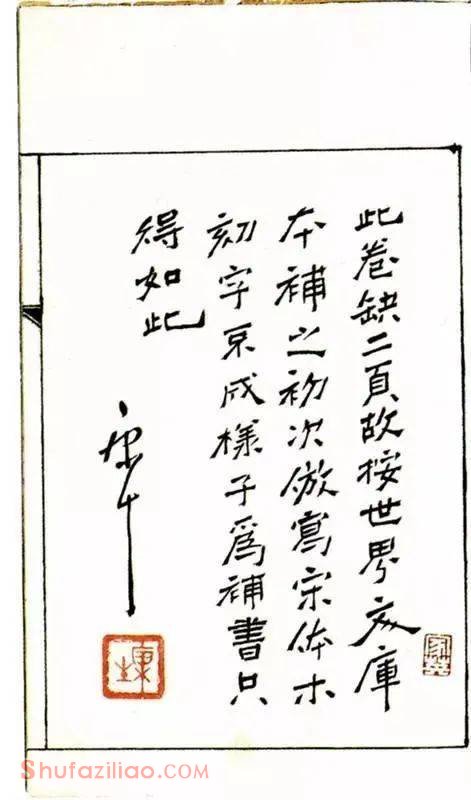 此卷缺二頁故按世界文庫
本補之初次倣寫宋体木
刻字不成樣子爲補書只
得如此
康生
康生
家英
Shufaziliao.COM